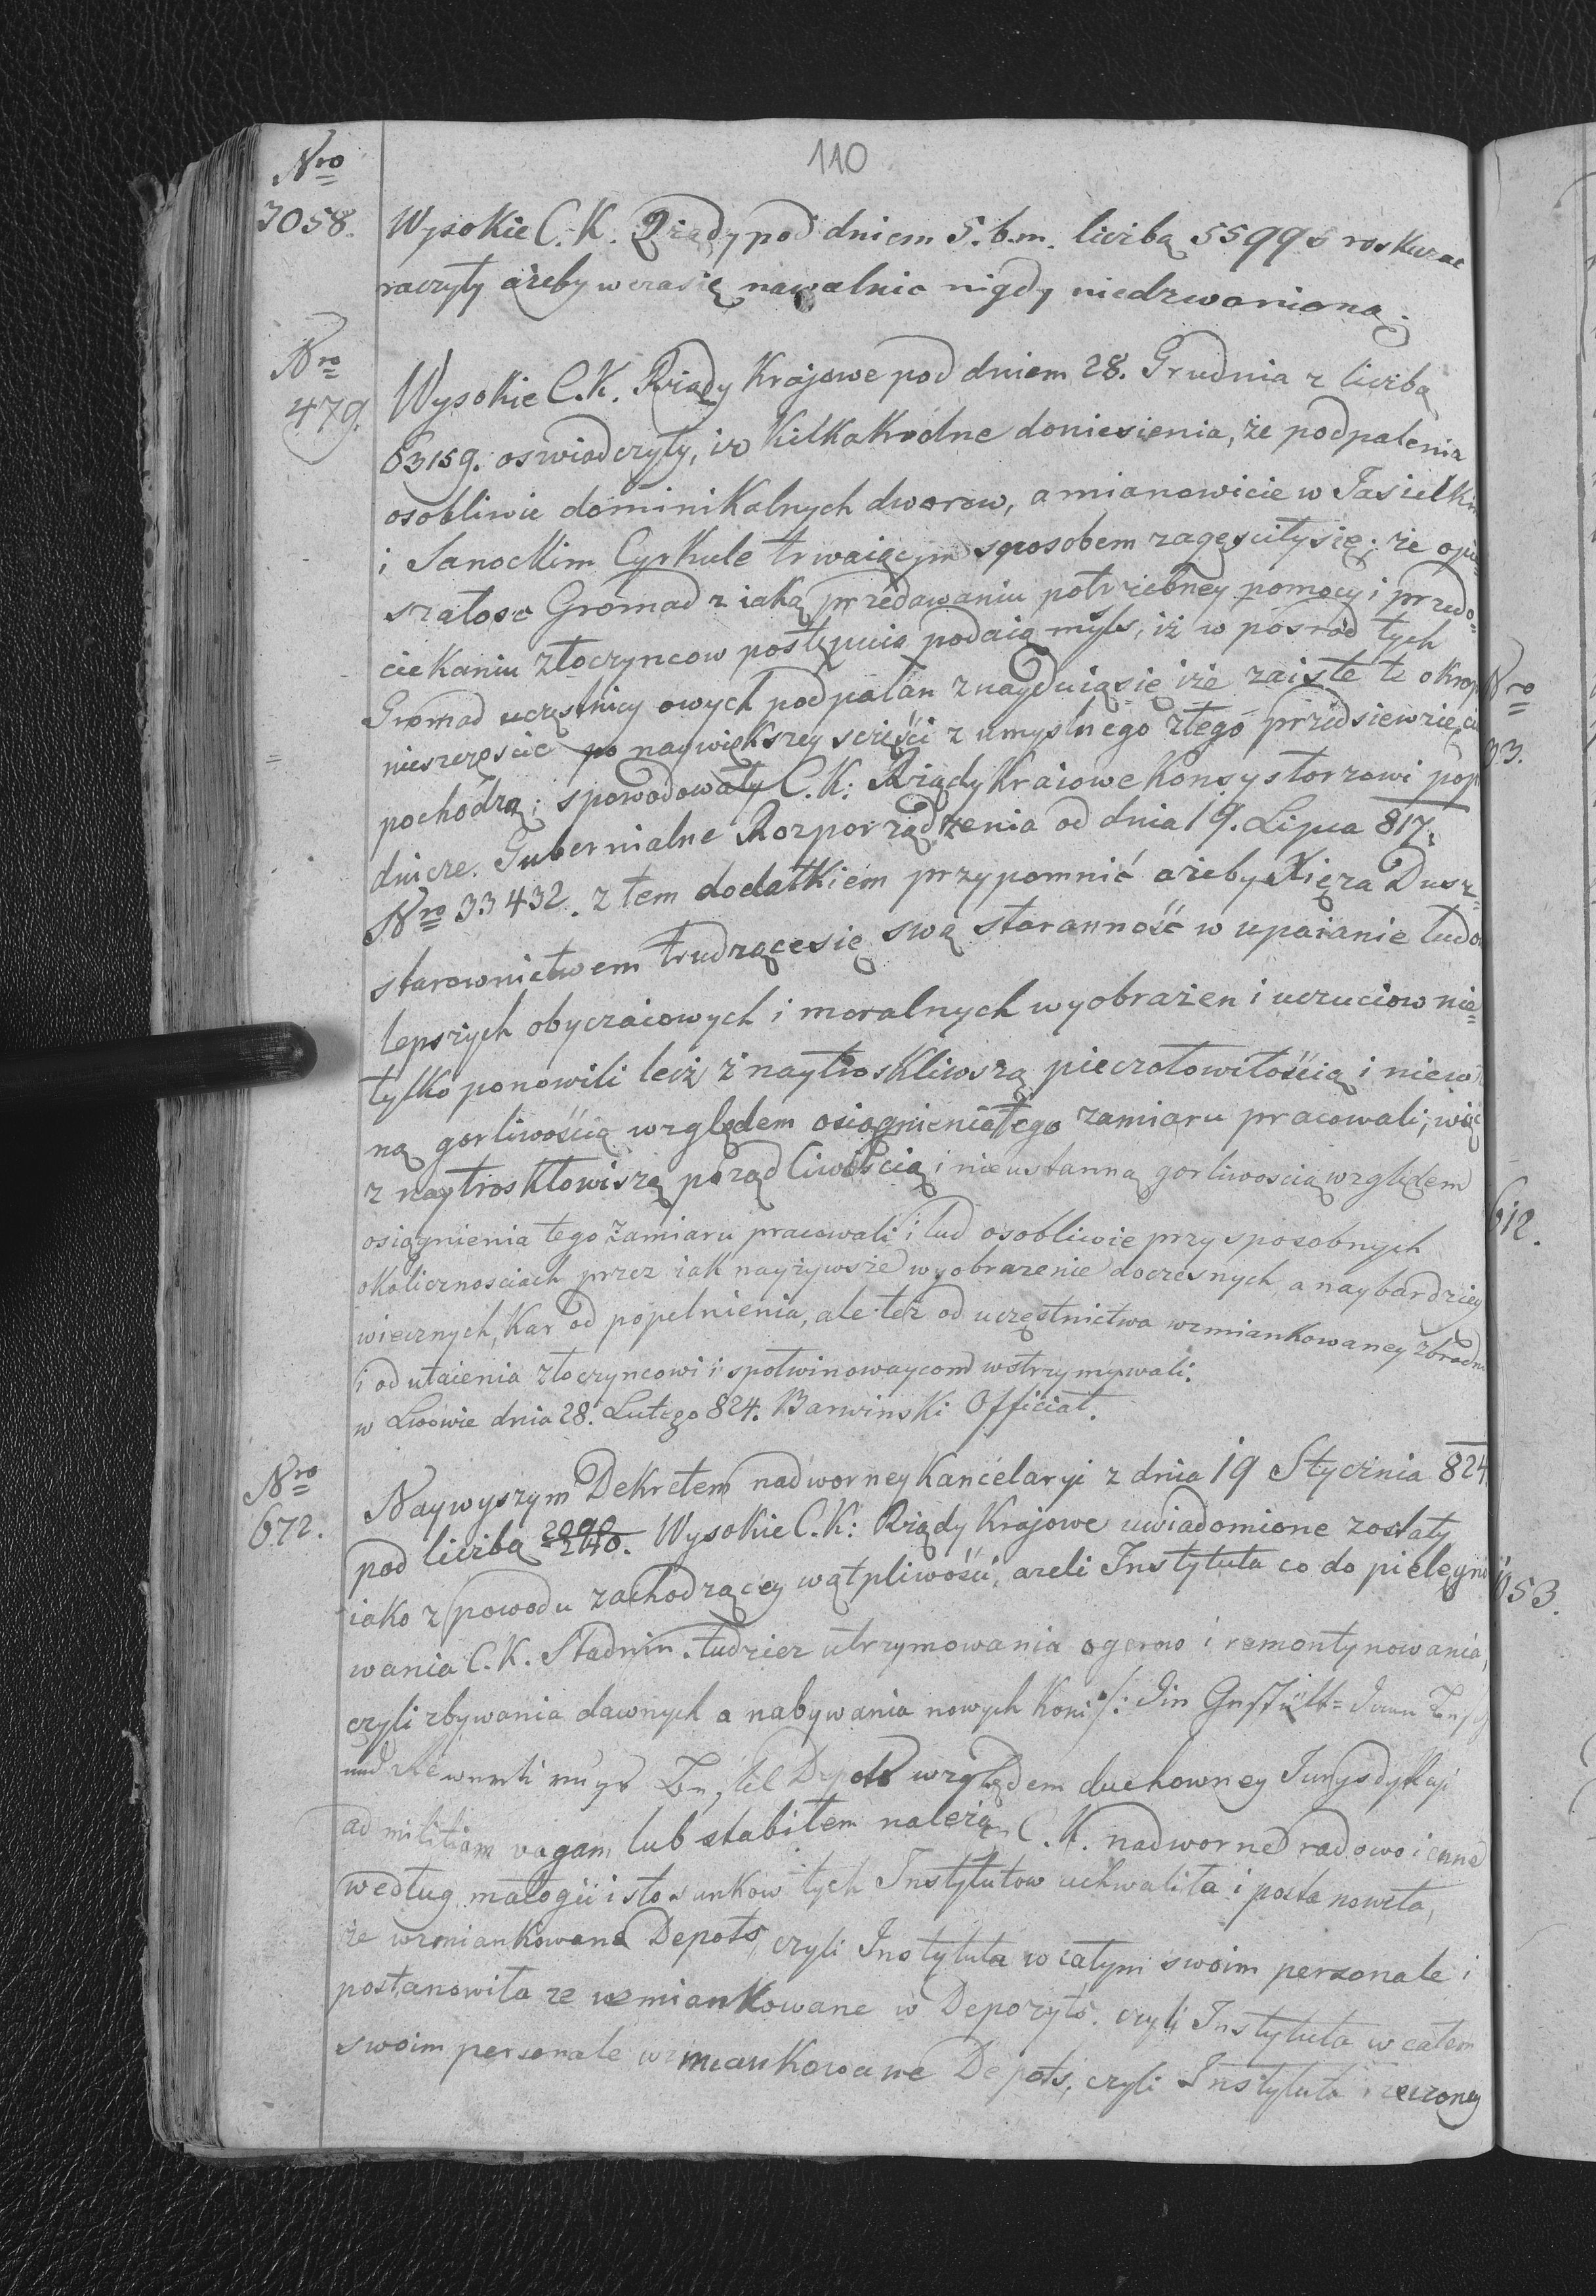 110
Nro
7058.
Wysokie C. K. Rządy pod dniem 5. b.m. liczbą 55995 roskazac
raczyły ażeby w czasię nawalnic nigdy niedzwoniono.
Nro
479.
Wysokie C. K. Rządy Krajowe pod dniem 28. Grudnia z liczbą
63159. oswiadczyły, iż Kilkakrotne doniesienia, że podpalenia
osobliwie dominikalnych dworow, a mianowicie w Jasielkim
i Sanockim Cyrkule trwaiącym sposobem zagęsciły się; że opie=
szałosc Gromad z iaką przedawaniu potrzebney pomocy i przedo=
ciekaniu złoczyncow postępuią podaią mysl, iż w posrod tych
Gromad uczęstnicy owych podpalan znayduią się iże zaiste te okrop
nieszczęscie po naywiększey sczęści z umyslnego złego przedsiewzięcia
pochodzą; spowodowały C. K: Rządy Kraiowe Konsystorzowi pop
dnicze. Gubernialne Rozporządzenia od dnia 19. Lipca 817.
Nro 33432. z tem dodatkiem przypomnić ażeby Xięza Dusz=
starownictwem trudzącesię swą staranność w upaianie ludo
lepszych obyczaiowych i moralnych wyobrażen i uczuciow nie=
tylko ponowili lecz z naytroskliwszą pieczołowitością i niew
ną gorliwością względem osiągnienia tego zamiaru pracowali; więc
z naytroskłowiszą porządliwością i nieustanną gorliwoscią względem
osiągnienia tego zamiaru pracowali i lud osobliwie przy sposobnych
okolicznosciach przez iak nayżywsze wyobrazenie doczesnych a naybardziey
wiecznych, Kar od popełnienia, ale też od uczęstnictwa wzmiankowaney zbrodni
i od utaienia złoczyncowi i społwinowaycom wstrzymywali.
w Lwowie dnia 28. Lutego 824. Barwinski Officiał.
Nro
672.
Naywyszym Dekretem nadworney Kancelaryi z dnia 19 Stycznia 824.
pod liczbą 2090/240. Wysokie C. K: Rządy Krajowe uwiadomione zostały
iako z powodu zachodzącey wątpliwości, azeli Instytuta co do pielęgno
wania C. K. Stadnin. tudziez utrzymowania ogerow i remontynowania,
czyli zbywania dawnych a nabywania nowych Koni /: Din Gestütt=
und Depots względem duchowney Jurysdykcyi
ad militiam vagam lub stabilem należą C. K. nadworne radowoienne
według małogii i stosunkow tych Instytutow uchwaliła i postanowiła,
że wzmiankowane Depots, czyli Instytuta w całym swoim personale i
postanowiła ze wzmiankowane w Depozyts. czyli Instytuta w całem
swoim personale wzmiankowane Depots, czyli Instytuta rzeczoney
Nro
33.
612.
653.